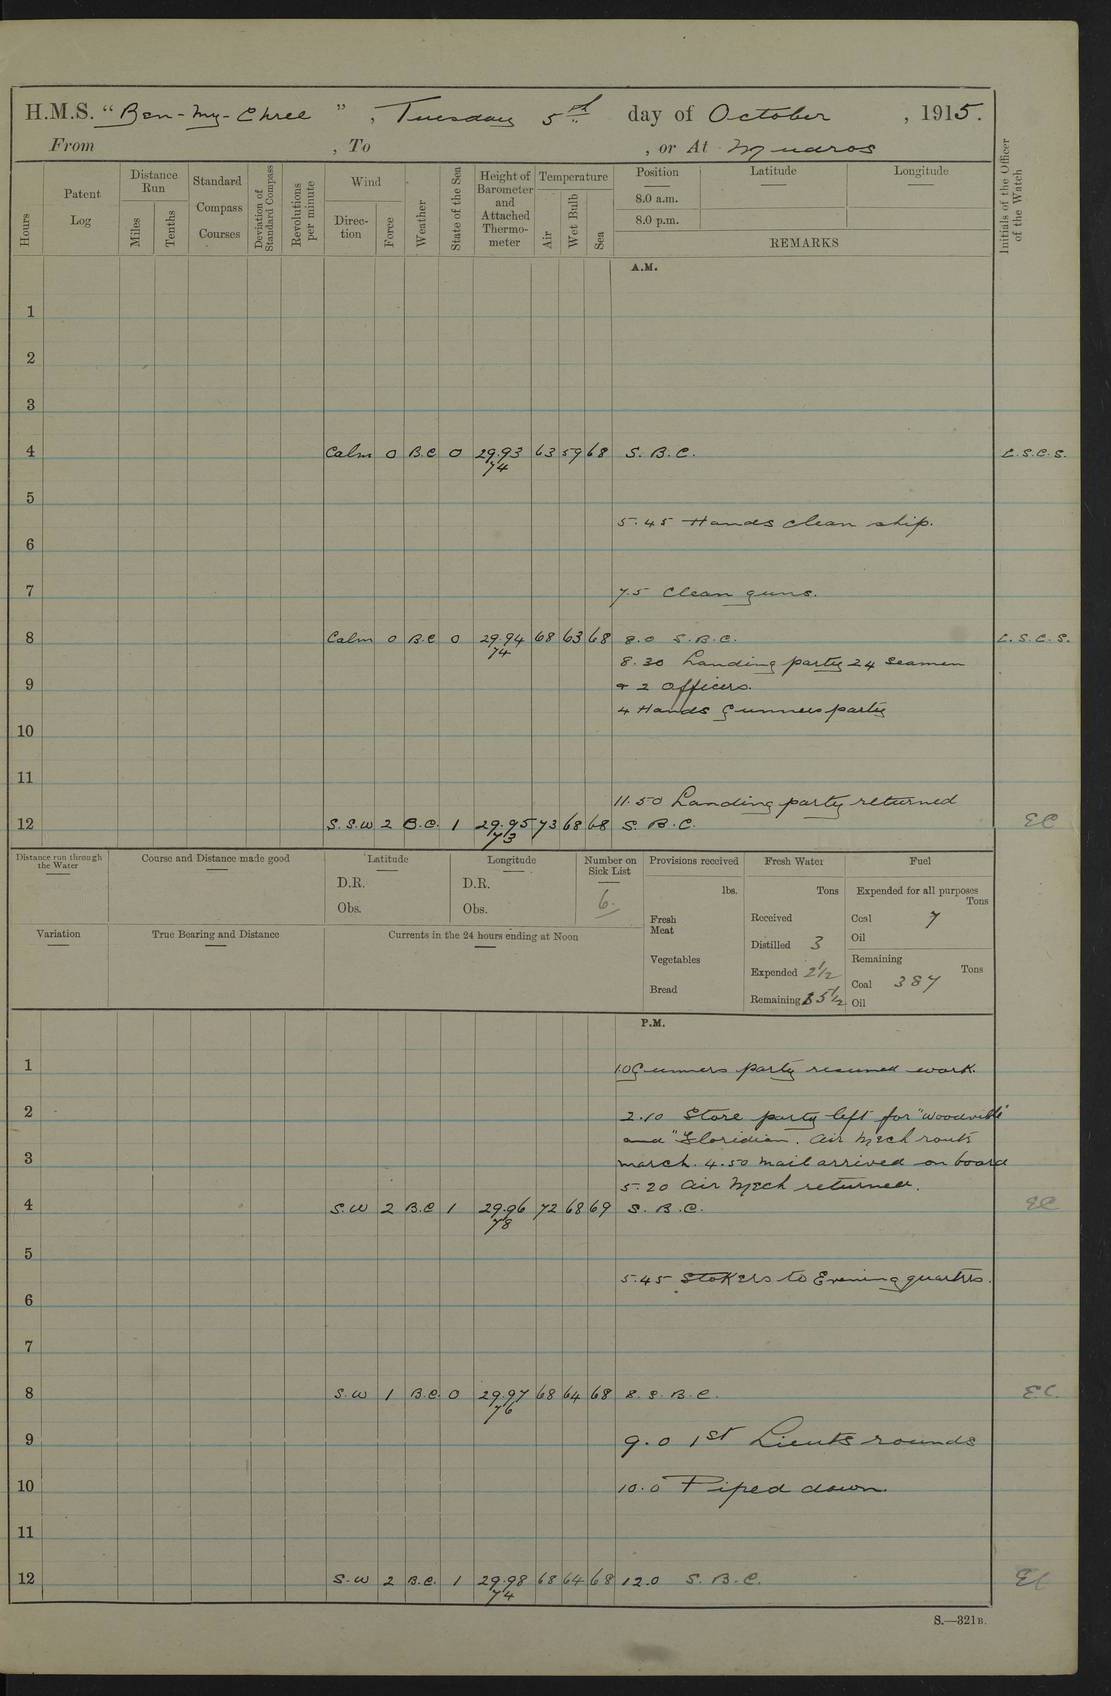 H.M.S. "Ben-my-Chree", Tuesday 5th day of October, 1915.
From , To , or At Mudros
Hours
Patent Log
Distance Run
Miles
Tenths
Standard Compass Courses
Deviation of Standard Compass
Revolutions per minute
Wind
Direc-tion
Force
Weather
State of the Sea
Height of Barometer and Attached Thermo-meter
Temperature
Air
Wet Bulb
Sea
Position
8.0 a.m.
8.0 p.m.
Latitude
Longitude
REMARKS
Initials of the Officer of the Watch
A.M.
1
2
3
4 Calm 0 B.C 0 29.93 63 59 68 S. B. C. L.S.C.S.
74
5
5.45 Hands clean ship.
6
7 7.5 Clean guns.
8 Calm 0 B.C 0 29.94 68 63 68 8.0 S.B.C. L.S.C.S.
74
8.30 Landing party 24 seamen
9 & 2 officers.
4 Hands Gunners party
10
11
11.50 Landing party returned
12 S.S.W 2 B.C. 1 29.95 73 68 68 S. B. C. EC
73
Distance run through the Water
Course and Distance made good
Latitude
D.R.
Obs.
Longitude
D.R.
Obs.
Number on Sick List
6.
Provisions received
lbs.
Fresh Meat
Vegetables
Bread
Fresh Water
Tons
Received
Distilled 3
Expended 2 1/2
Remaining 5 1/2
Fuel
Expended for all purposes
Tons
Coal 7
Oil
Remaining
Tons
Coal 387
Oil
Variation
True Bearing and Distance
Currents in the 24 hours ending at Noon
P.M.
1 1.0 Gunners party resumed work.
2 2.10 Store party left for "Woodville"
and "Floridian. Air Mech route
3 march. 4.50 mail arrived on board
5.20 Air Mech returned.
4 S.W 2 B.C 1 29.96 72 68 69 S. B. C. EC
78
5
5.45 Stokers to Evening quarters.
6
7
8 S.W 1 B.C. 0 29.97 68 64 68 8. S. B. C. E.C.
76
9 9.0 1st Lieuts rounds
10 10.0 Piped down.
11
12 S.W 2 B.C. 1 29.98 68 64 68 12.0 S. B. C. EC
74
S.—321B.